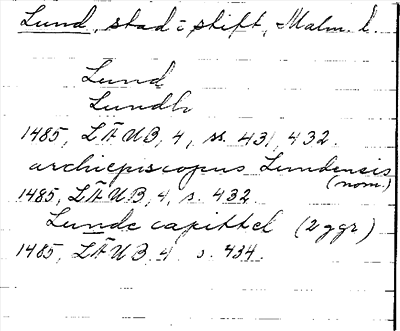 Lund, stad o stift, Malm. l.
Lund
Lundh
1485, LÄUB, 4, ss. 431, 432.
archiepiscopus Lundensis
(nom.)
1485, LÄUB, 4, s. 432
Lunde capittel (2 ggr)
1485, LÄUB, 4 s. 434.